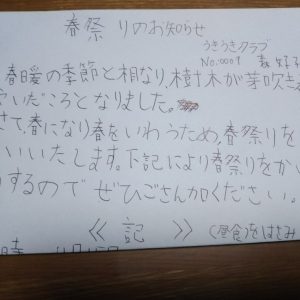 春祭りのお知らせ
うきうきクラブ
No.0001
春暖の季節と相なり、樹木が芽吹き
いだころとなりました。
さて、春になり春をいわうため、春祭りを
いいたします。下記により春祭りをかい
するのでぜひごさんかください。
≪ 記 ≫ (昼食)をはさみ